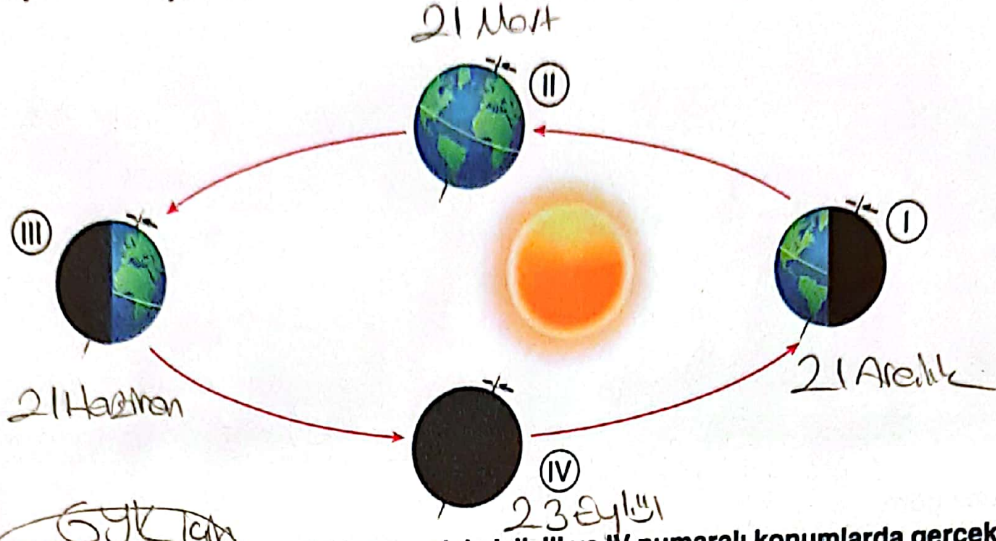 21 Mart
II
III
I
21 Haziran
21 Aralık
IV
23 Eylül
GYK için
IV numaralı konumlarda gerçek